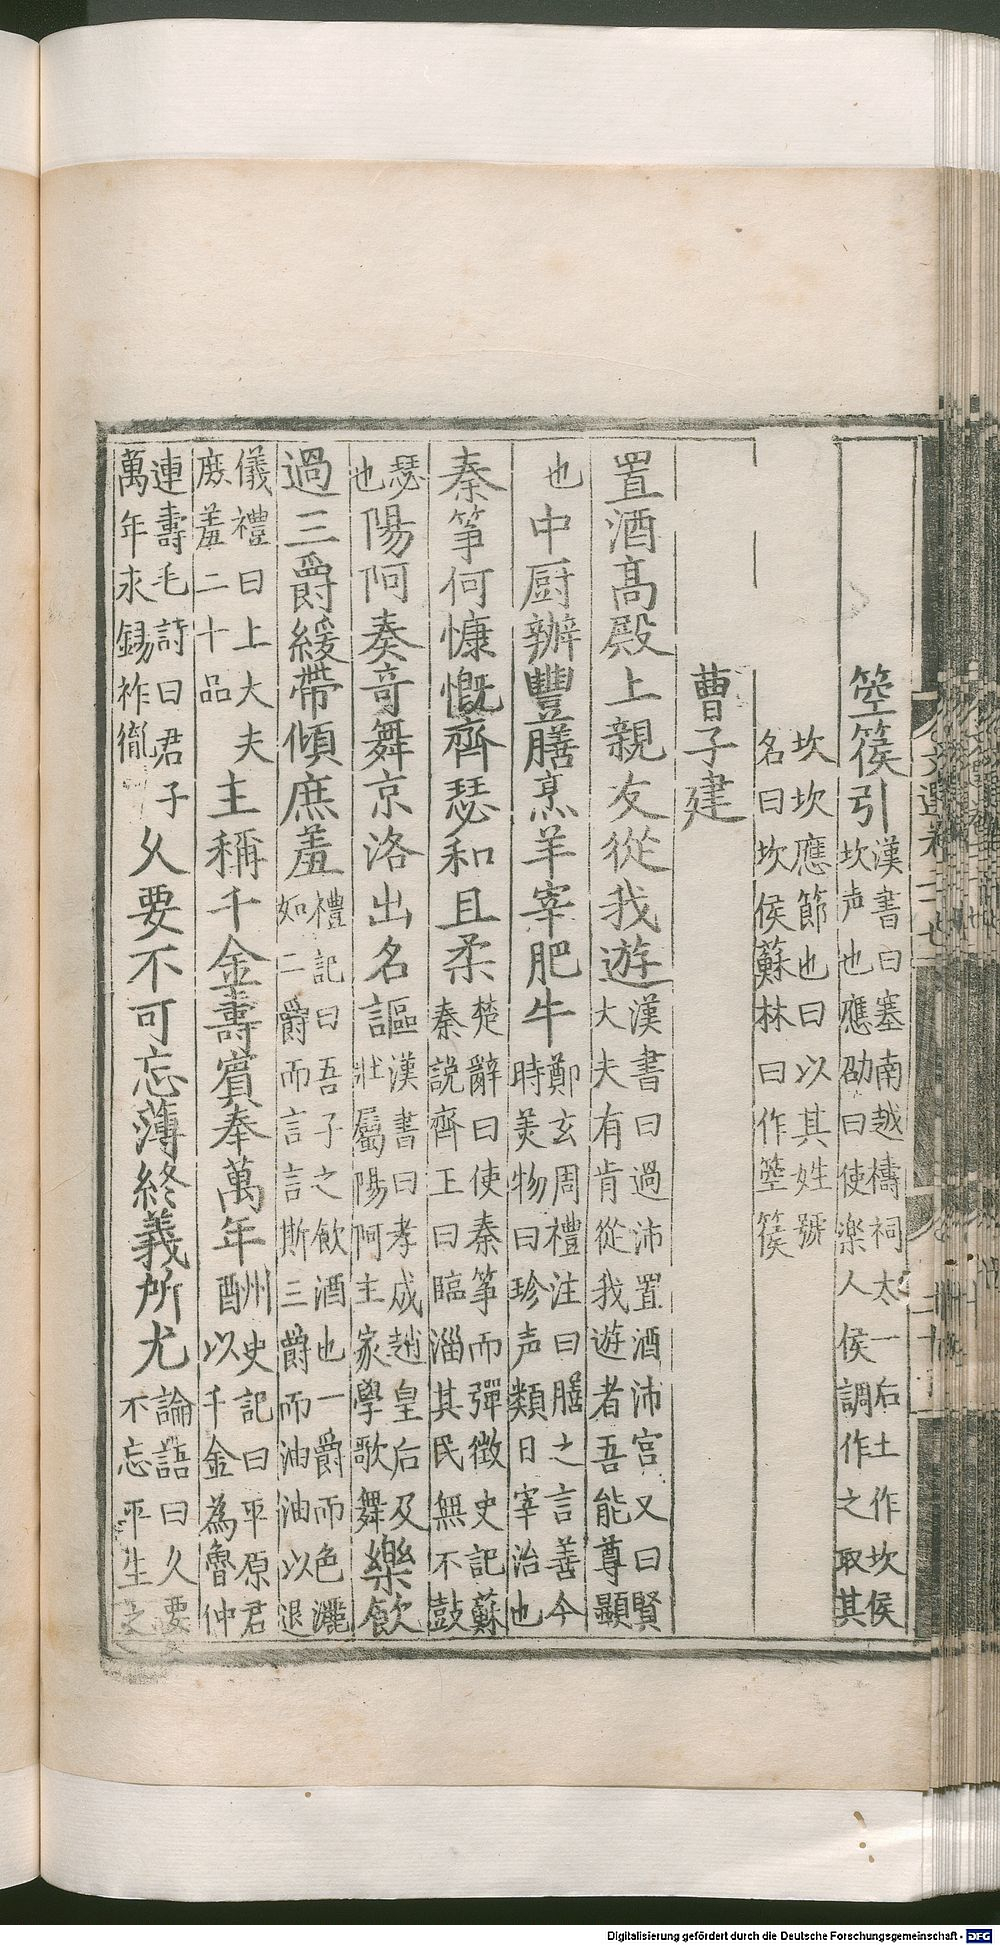 文選卷二十七
箜篌引漢書曰塞南越禱祠太一后土作坎侯
坎声也應劭曰使楽人侯調作之取其
坎坎應節也曰以其姓號
名曰坎侯蘇林曰作箜篌
曹子建
置酒髙殿上親友從我遊漢書曰過沛置酒沛宫又曰賢
大夫有肯從我遊者吾能尊顯
也中厨辦豐膳烹羊宰肥牛鄭玄周禮注曰膳之言善今
時美物曰珍声類曰宰治也
秦筝何慷慨齊瑟和且柔楚辭曰使秦筝而彈徴史記蘇
秦說齊王曰臨淄其民無不鼓
瑟也陽阿奏竒舞京洛出名謳漢書曰孝成趙皇后及
壯屬陽阿主家學歌舞樂飲
過三爵緩帶傾庶羞禮記曰吾子之飲酒也一爵而色灑
如二爵而言言斯三爵而油油以退
儀禮曰上大夫
庶羞二十品主稱千金壽賓奉萬年州史記曰平原君
酬以千金為魯仲
連壽毛詩曰君子
萬年永錫祚胤久要不可忘薄終義所尤論語曰久要
不忘平生之
Digitalisierung gefördert durch die Deutsche Forschungsgemeinschaft - DFG